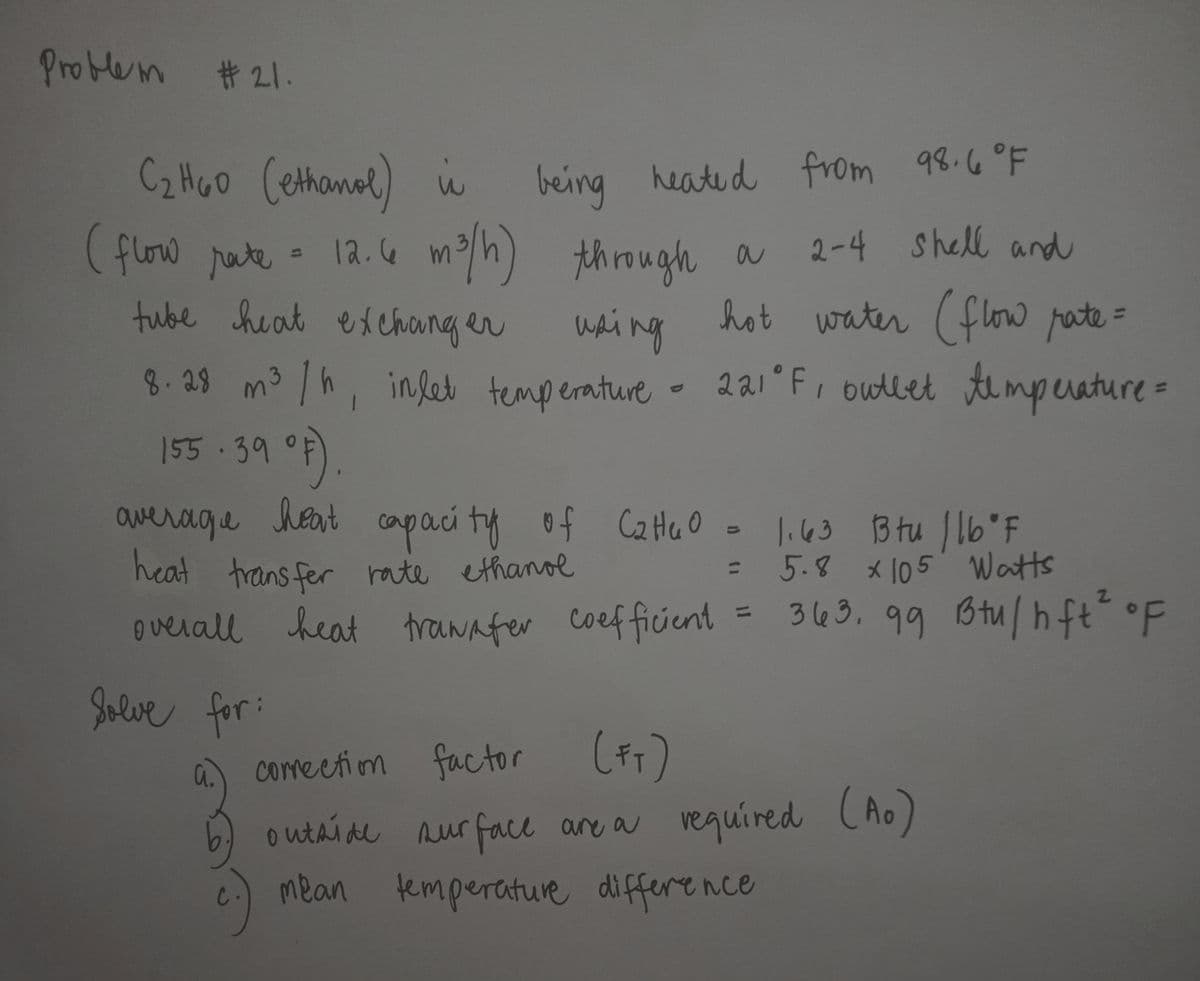 Problem # 21.
C2H6O (ethanol) is being heated from 98.6 °F
(flow rate = 12.6 m³/h) through a 2-4 shell and
tube heat exchanger using hot water (flow rate =
8.28 m³/h, inlet temperature = 221°F, outlet temperature =
155.39 °F).
average heat capacity of C2H6O = 1.63 Btu/lb°F
heat transfer rate ethanol = 5.8 x 105 Watts
overall heat transfer coefficient = 363.99 Btu/h ft² °F
Solve for:
a.) correction factor (FT)
b.) outside surface area required (Ao)
c.) mean temperature difference